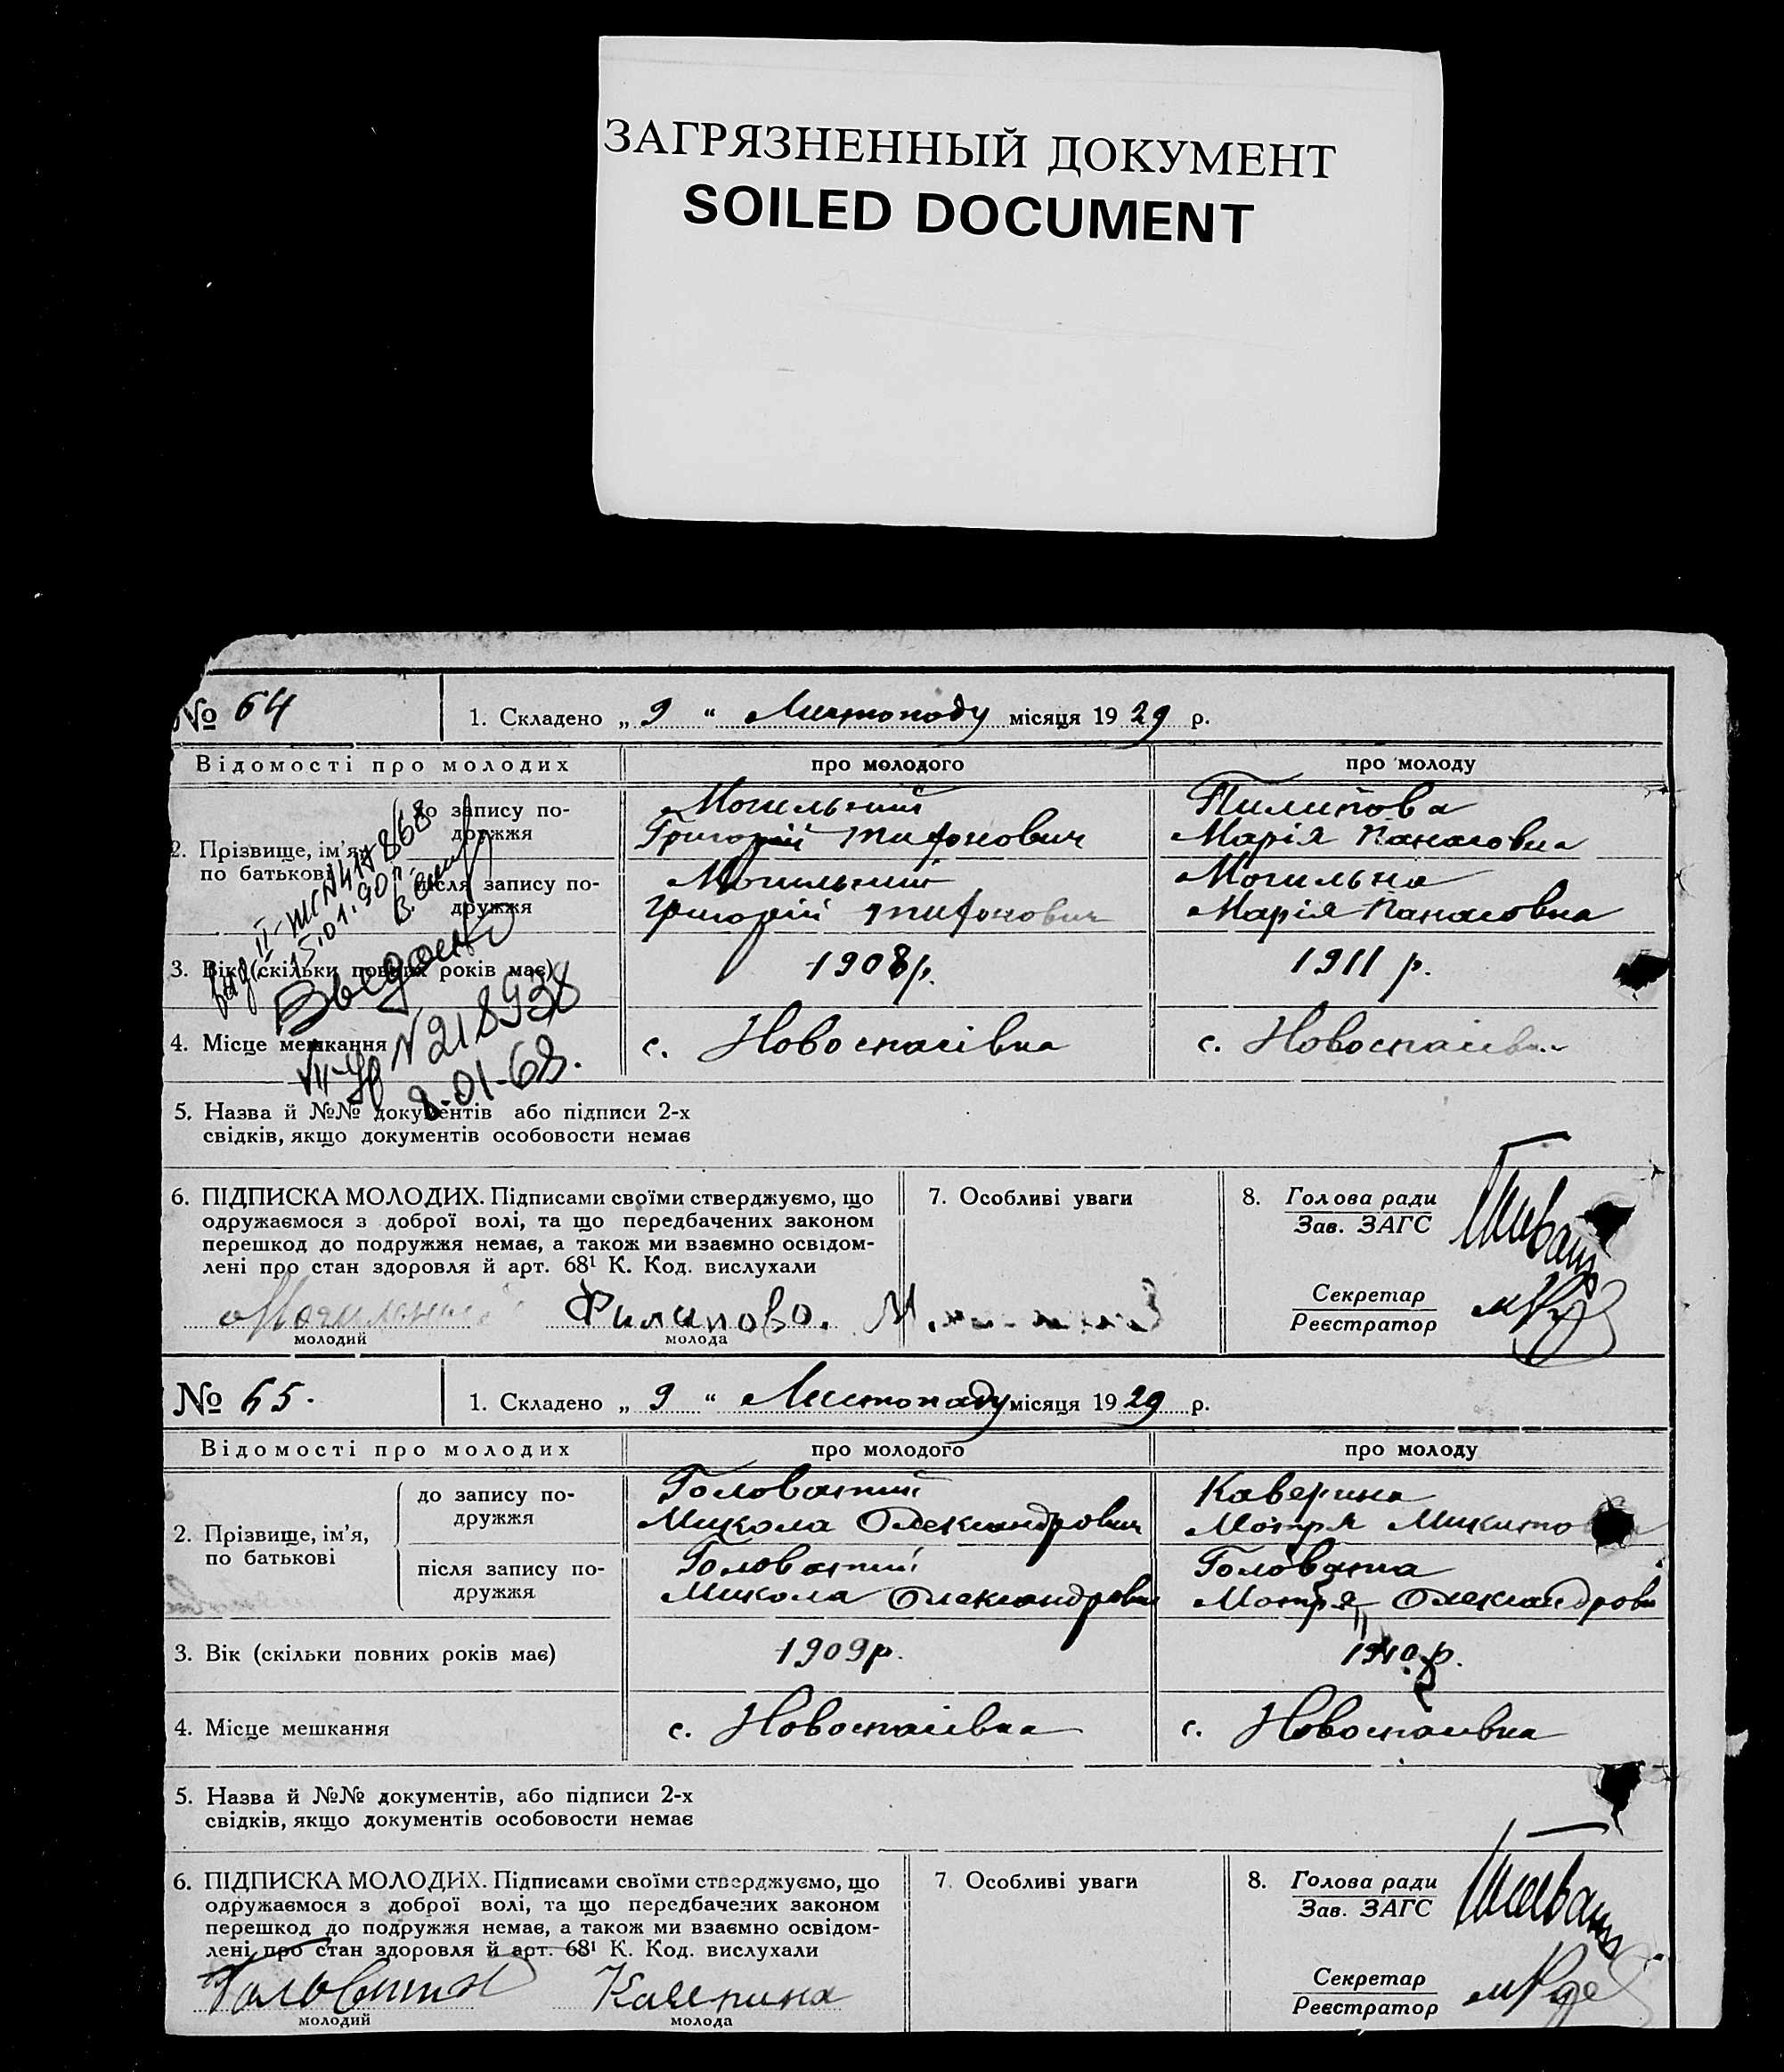 ЗАГРЯЗНЕННЫЙ ДОКУМЕНТ
SOILED DOCUMENT
№ 64
1. Складено „ 9 “ Листопаду місяця 1929 р.
Відомості про молодих
про молодого
про молоду
2. Прізвище, ім’я, по батькові
до запису по-
дружжя
Могильний
Григорій Тифонович
Пилипова
Марія Панасовна
після запису по-
дружжя
Могильний
Григорій Тифонович
Могильна
Марія Панасовна
3. Вік (скільки повних років має)
1908 р.
1911 р.
4. Місце мешкання
с. Новоспасівка
с. Новоспасівка
II-ЖС №417868
15.01.90
VII- №218938
8-01-68.
5. Назва й №№ документів або підписи 2-х
свідків, якщо документів особовости немає
6. ПІДПИСКА МОЛОДИХ. Підписами своїми стверджуємо, що
одружаємося з доброї волі, та що передбачених законом
перешкод до подружжя немає, а також ми взаємно освідом-
лені про стан здоровля й арт. 68¹ К. Код. вислухали
Могильний
молодий
Филипова.
молода
7. Особливі уваги
8. Голова ради
Зав. ЗАГС
Секретар
Реєстратор
№ 65.
1. Складено „ 9 “ Листопаду місяця 1929 р.
Відомості про молодих
про молодого
про молоду
2. Прізвище, ім’я,
по батькові
до запису по-
дружжя
Головатий
Микола Олександрович
Каверина
Мотря
після запису по-
дружжя
Головатий
Микола Олександрович
Головата
Мотря Олександровн
3. Вік (скільки повних років має)
1909 р.
1910 р.
4. Місце мешкання
с. Новоспасівка
с. Новоспасівка
5. Назва й №№ документів, або підписи 2-х
свідків, якщо документів особовости немає
6. ПІДПИСКА МОЛОДИХ. Підписами своїми стверджуємо, що
одружаємося з доброї волі, та що передбачених законом
перешкод до подружжя немає, а також ми взаємно освідом-
лені про стан здоровля й арт. 68¹ К. Код. вислухали
молодий
молода
7. Особливі уваги
8. Голова ради
Зав. ЗАГС
Секретар
Реєстратор